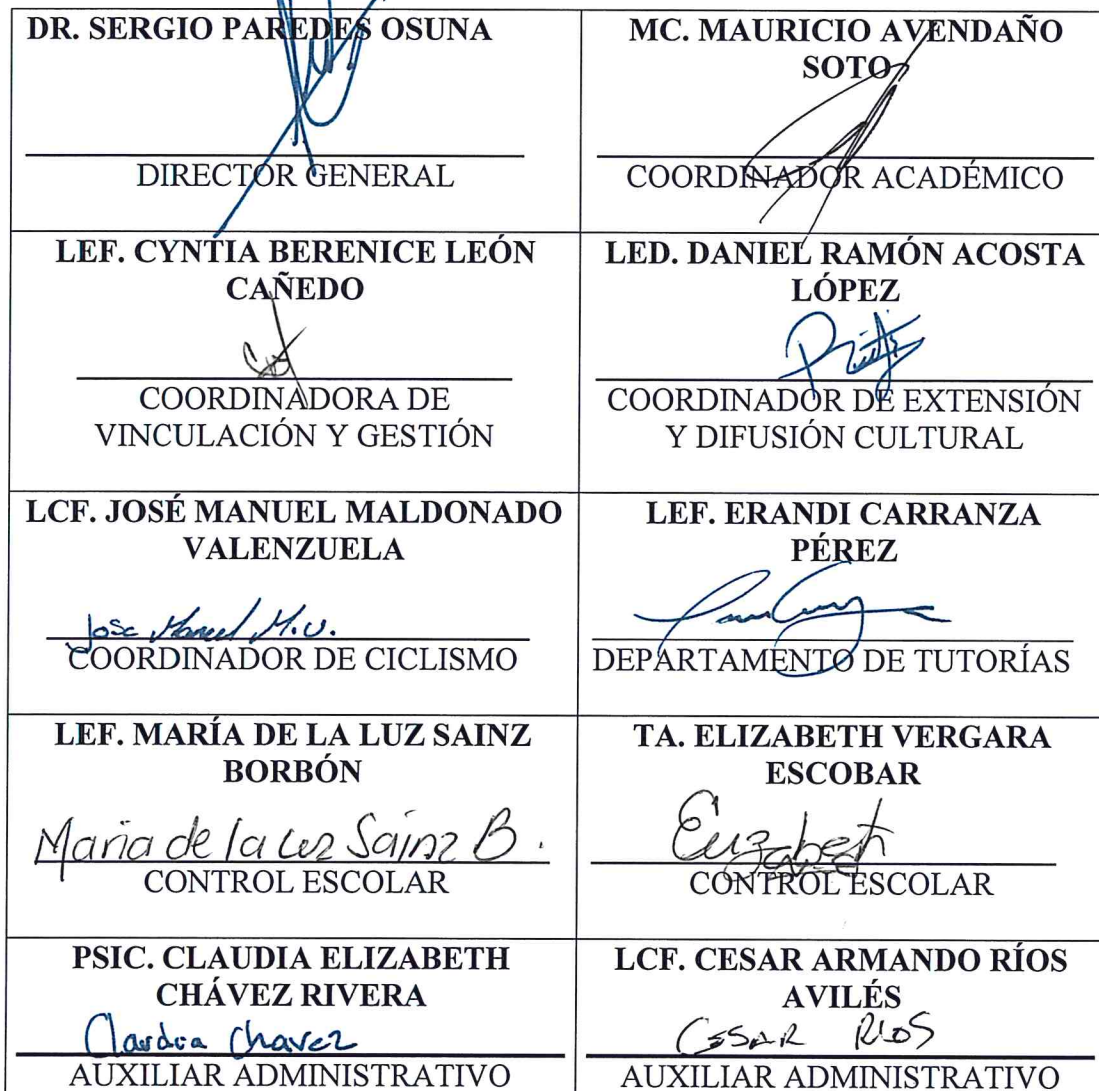 DR. SERGIO PAREDES OSUNA
DIRECTOR GENERAL
MC. MAURICIO AVENDAÑO
SOTO
COORDINADOR ACADÉMICO
LEF. CYNTIA BERENICE LEÓN
CAÑEDO
COORDINADORA DE
VINCULACIÓN Y GESTIÓN
LED. DANIEL RAMÓN ACOSTA
LÓPEZ
COORDINADOR DE EXTENSIÓN
Y DIFUSIÓN CULTURAL
LCF. JOSÉ MANUEL MALDONADO
VALENZUELA
Jose Manuel M.V.
COORDINADOR DE CICLISMO
LEF. ERANDI CARRANZA
PÉREZ
DEPARTAMENTO DE TUTORÍAS
LEF. MARÍA DE LA LUZ SAINZ
BORBÓN
Maria de la Luz Sainz B.
CONTROL ESCOLAR
TA. ELIZABETH VERGARA
ESCOBAR
Elizabeth
CONTROL ESCOLAR
PSIC. CLAUDIA ELIZABETH
CHÁVEZ RIVERA
Claudia Chavez
AUXILIAR ADMINISTRATIVO
LCF. CESAR ARMANDO RÍOS
AVILÉS
CESAR RIOS
AUXILIAR ADMINISTRATIVO